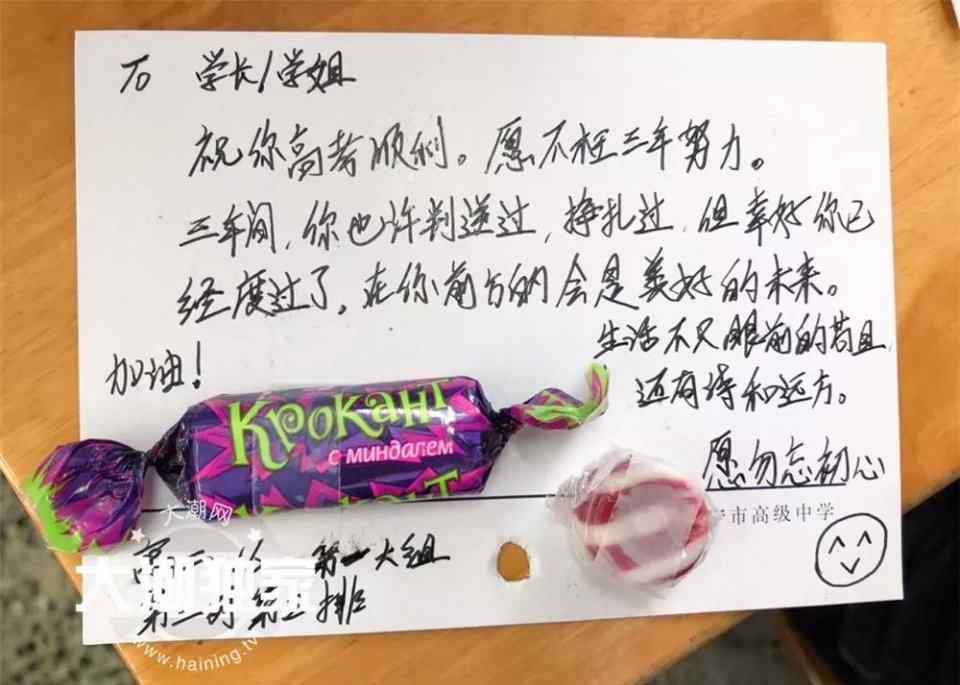 To 学长/学姐
祝你高考顺利。愿不枉三年努力。
三年间,你也许判逆过,挣扎过,但幸好你已
经度过了,在你前方的会是美好的未来。
加油!
生活不只眼前的苟且,
还有诗和远方。
愿勿忘初心
КРОКАНТ
с миндалем
市高级中学
大潮网
第一大组
大潮独家
www.haining.tv